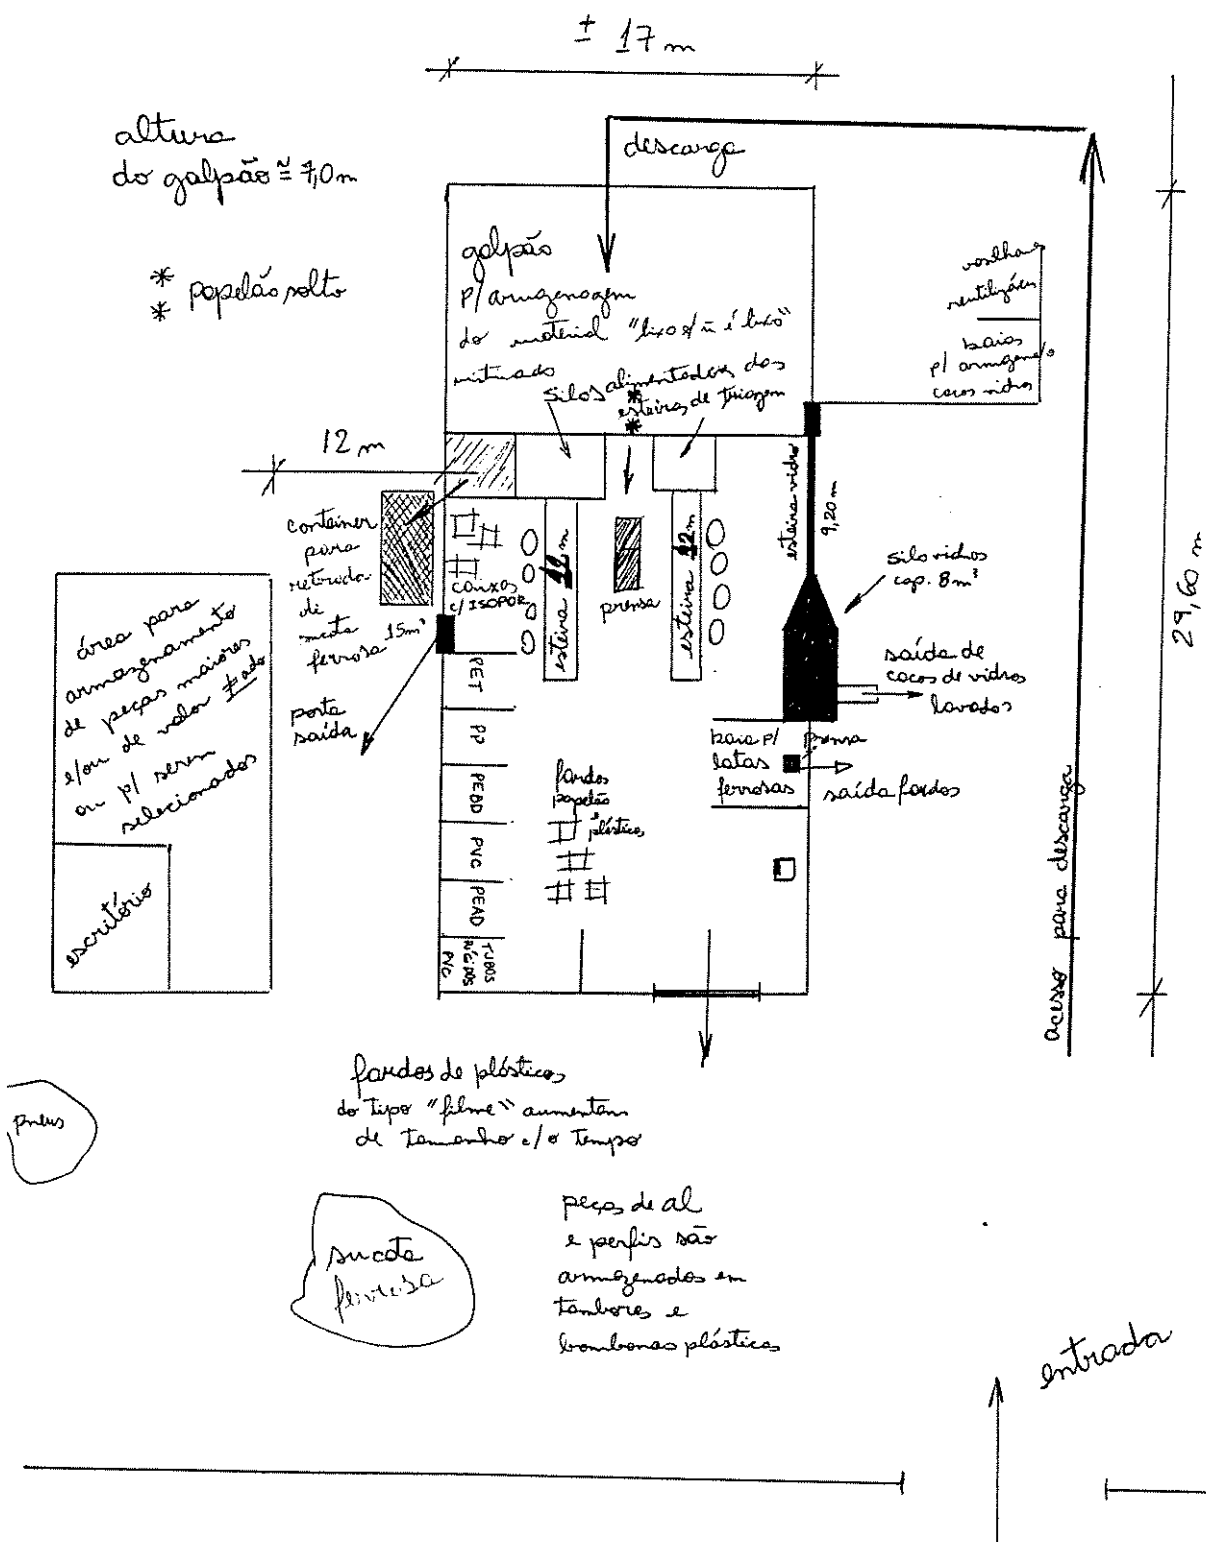 ± 17 m
altura
do galpão ≅ 7,0 m
descarga
* papelão solto
*
galpão
p/ armazenagem
do material "lixo q/ ñ é lixo"
misturado
silos alimentadores das
esteiras de triagem
*
*
vasilhames
reutilizáveis
baias
p/ armazen/o
cacos vidros
12 m
29,60 m
container
para
retirada
de
sucata
ferrosa 15m³
caixas
c/ ISOPOR
esteira m
prensa
esteira m
esteira vidro
9,20 m
silo vidros
cap. 8 m³
saída de
cacos de vidros
lavados
porta
saída
área para
armazenamento
de peças maiores
e/ou de valor ≠ado
ou p/ serem
selecionados
escritório
PET
PP
PEBD
PVC
PEAD
TUBOS
RÍGIDOS
PVC
fardos
papelão
e
plásticos
baia p/
latas
ferrosas
prensa
saída fardos
acesso para descarga
fardos de plásticos
do tipo "filme" aumentam
de tamanho c/ o tempo
pneus
sucata
ferrosa
peças de al
e perfis são
armazenados em
tambores e
bombonas plásticas
entrada